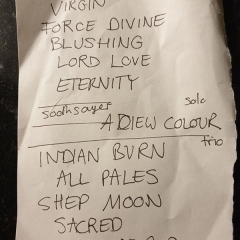 VIRGIN
FORCE DIVINE
BLUSHING
LORD LOVE
ETERNITY
Soothsayer solo
ADIEW COLOUR
trio
INDIAN BURN
ALL PALES
SHEP MOON
SACRED